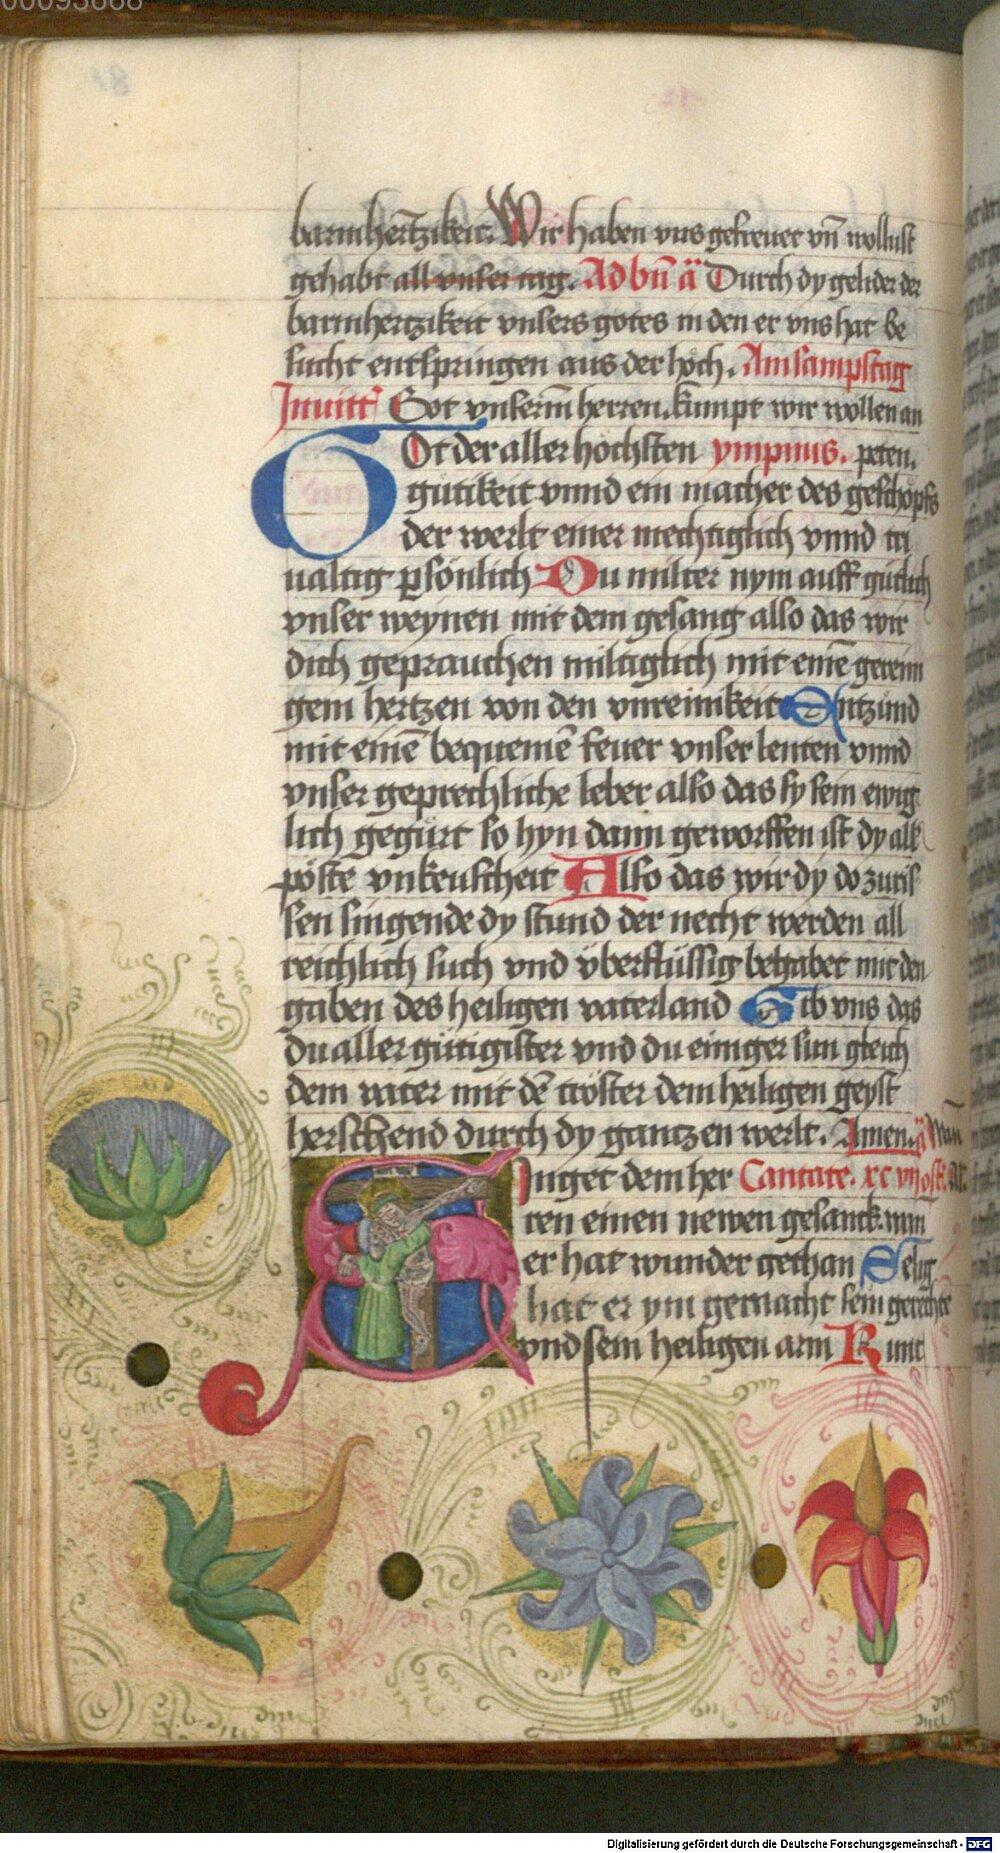 00093668
barmhertzikeit. Wir haben vns gefreuet vn̄ wollust
gehabt all vnser tag. Ad bn̄ ä Durch dy gelider der
barmhertzikeit vnsers gotes in den er vns hat be
sucht entspringen aus der höch. Am sampstag
Inuitt Got vnserm̄ herren. kumpt wir wollen an
GOt der aller höchsten ympnus. peten.
gütikeit vnnd ein macher des geschöpfs
der werlt einer mechtiglich vnnd tri
ualtig ꝑsönlich Du milter nym auff gütlich
vnser weynen mit dem gesang also das wir
dich geprauchen miltiglich mit einē gereini
gem hertzen von den vnreinikeit Entzünd
mit einē bequemē feuer vnser lenten vnnd
vnser geprechliche leber also das sy sein ewig
lich gegürt so hyn dann geworffen ist dy all
pöste vnkeuscheit Also das wir dy do zuris
sen singende dy stund der necht werden all
reichlich such vnd überflüssig begabet mit den
gaben des heiligen vaterland Gib vns das
du aller gütigister vnd du einiger sun gleich
dem vater mit dē tröster dem heiligen geyst
herschend durch dy gantzen werlt. Amen. ä Wan̄
SInget dem her Cantate. xcvij
ten einen newen gesanck. wan
er hat wunder gethan Selig
hat er ym gemacht sein gerechte
vnd sein heiligen arm Kunt
Digitalisierung gefördert durch die Deutsche Forschungsgemeinschaft - DFG